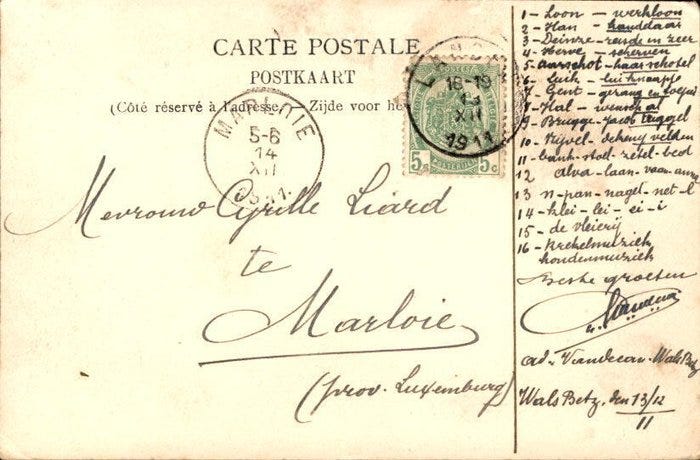 CARTE POSTALE
POSTKAART
(Côté réservé à l'adresse. Zijde voor he
MARLOIE
5-6
14
XII
LANDEN
18-19
13
XII
1911
5c 5c
Mevrouw Cyrille Liard
te
Marloie
(prov. Luxemburg)
1 - Loon - werkloon
2 - Han - handdaar
3 - Deinze - reusde in zeer
4 - Herve - scherven
5 - aarschot - haarschotel
6 - Luik - luikknapje
7 - Gent - gerang en
8 - Hal - wenschal
9 - Brugge - Jacob bruggel
10 - Nijvel - de velden
11 - bank - stoel - zetel - bed
12 alva - laan - vaan - anna
13 n - pan - nagel - net - l
14 - klei - lei - ei - i
15 - de vleierij
16 - Krekelmuziek
hondenmuziek
Beste groeten
ad. Vandecan - Wals Betz
Wals Betz, den 13/12
11